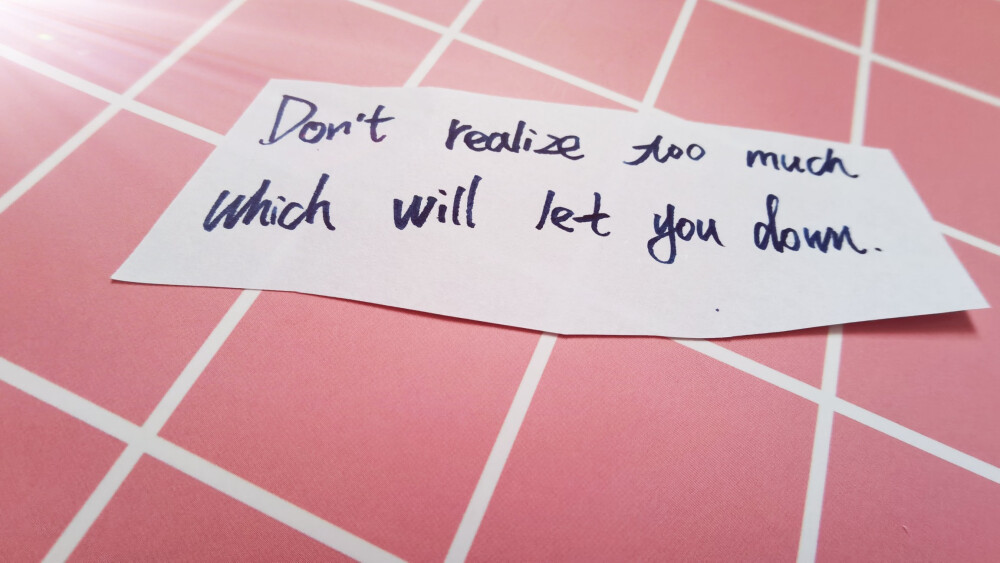 Don't realize too much
which will let you down.